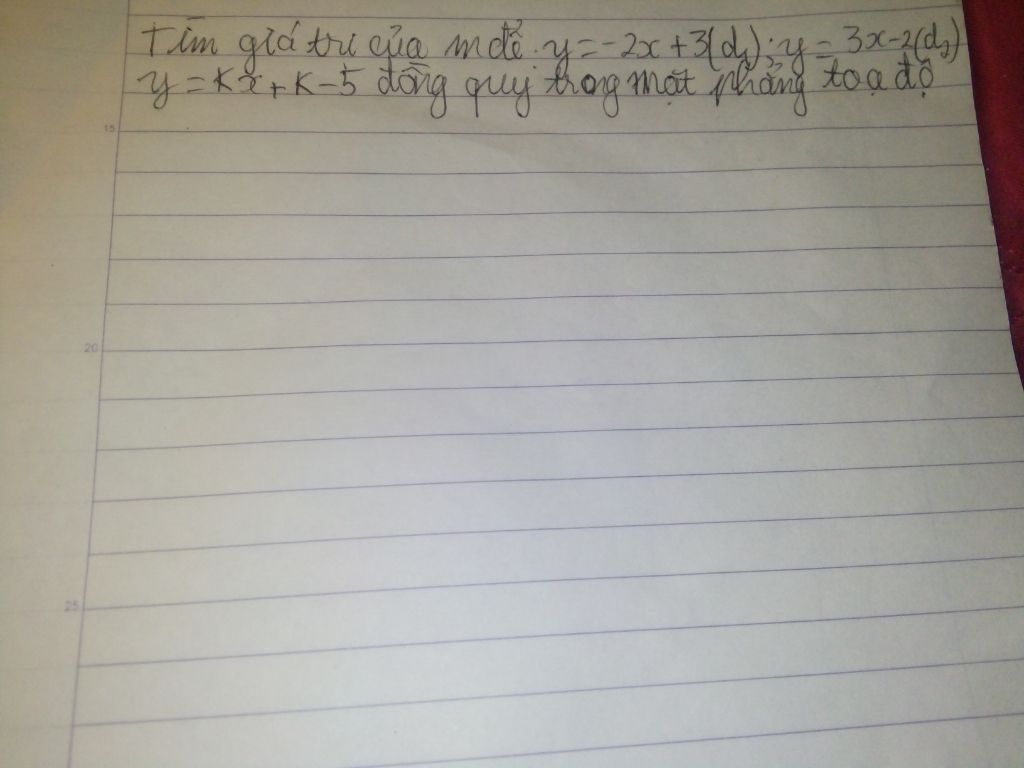 Tìm giá trị của m để y = -2x + 3(d₁); y = 3x - 2(d₂)
y = kx + k - 5 đồng quy trong mặt phẳng toạ độ
15
20
25